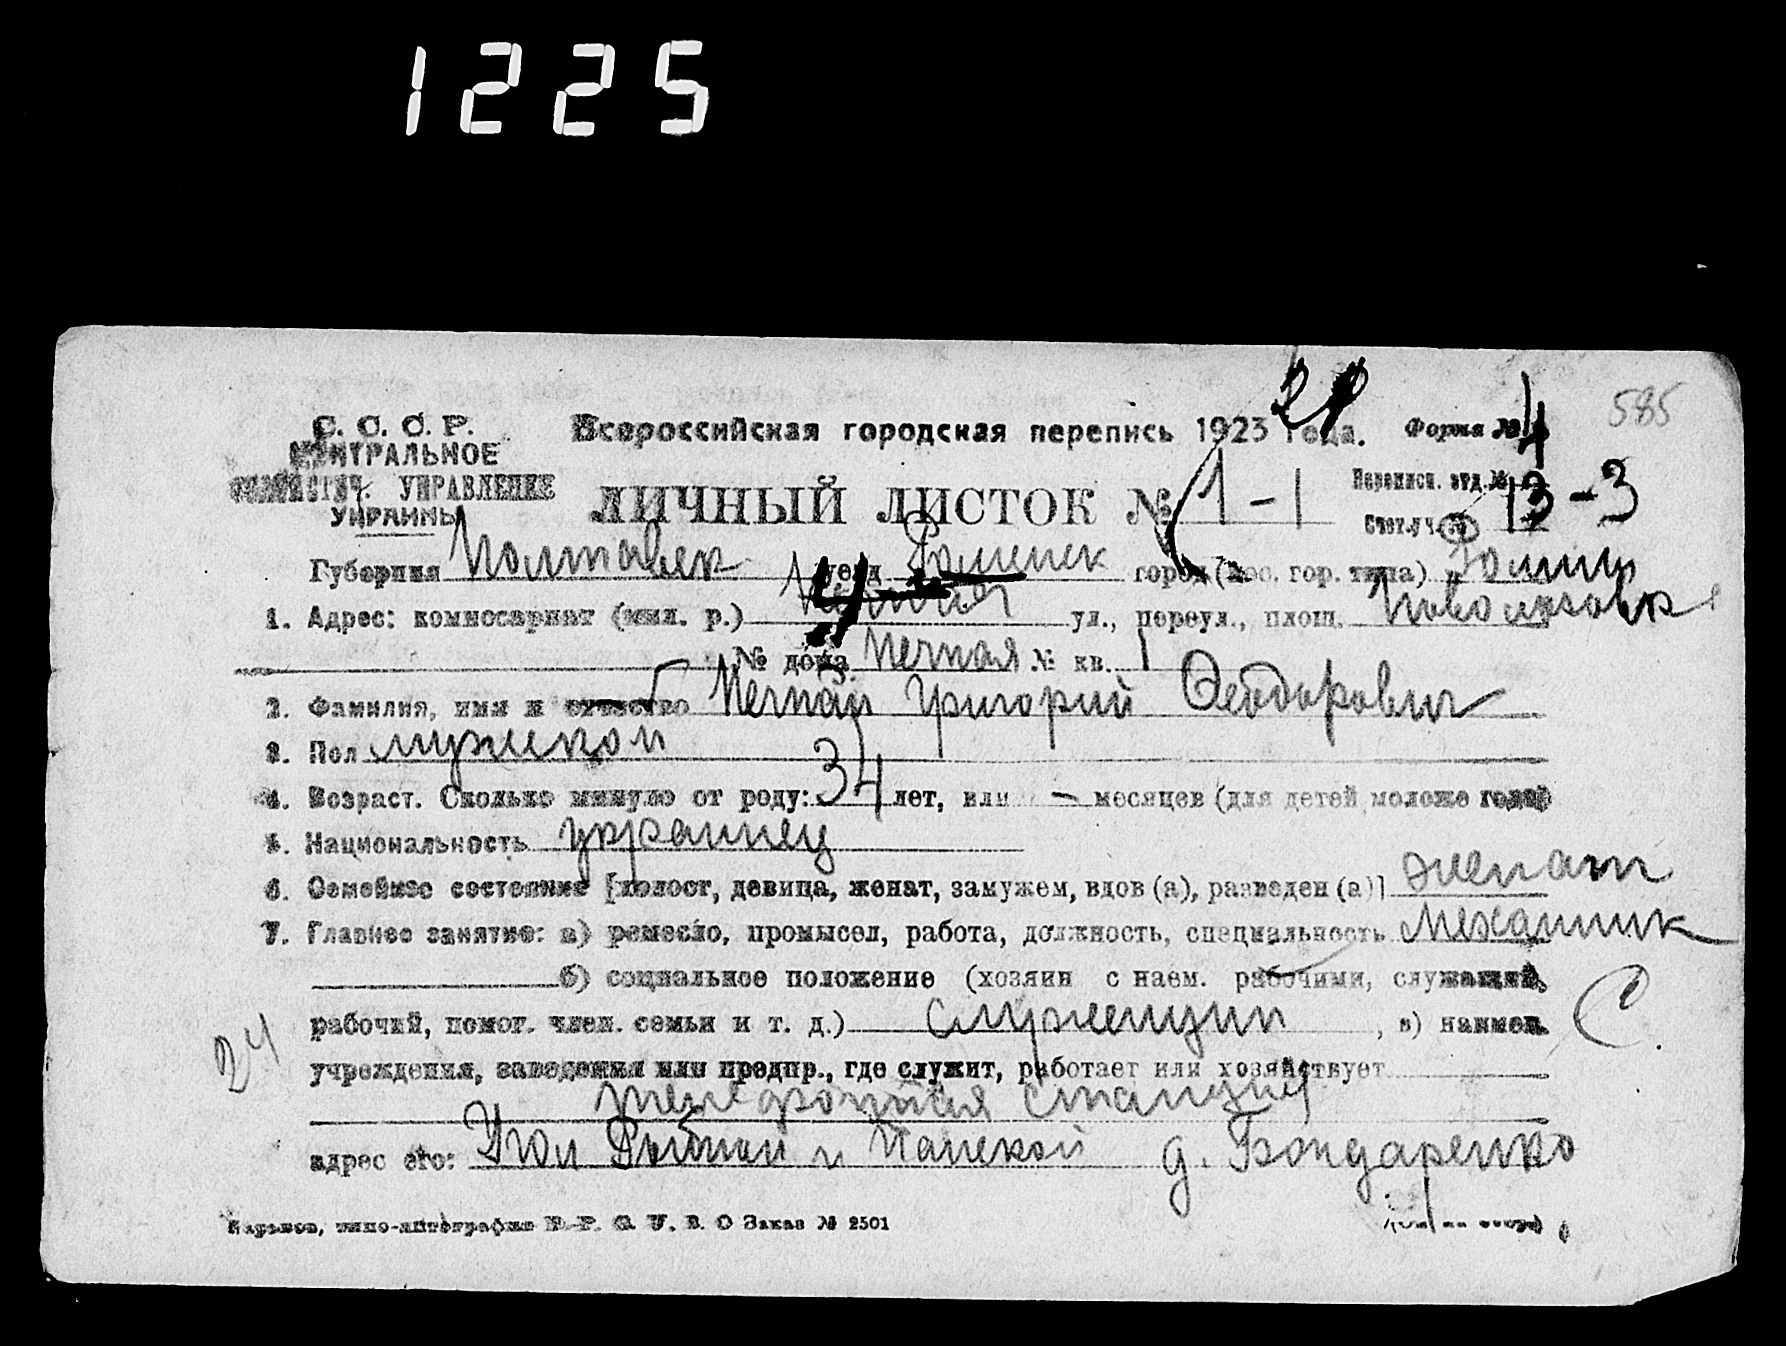 1225
585
С. С. С. Р. Всероссийская городская перепись 1923 года. Форма № 4
ЦЕНТРАЛЬНОЕ
СТАТИСТИЧ. УПРАВЛЕНИЕ
УКРАИНЫ
ЛИЧНЫЙ ЛИСТОК № 1-1 Переписн. отд. № 13-3
Счет. уч. №
Губерния Полтавск уезд Роменск город (пос. гор. типа) Ромны
1. Адрес: комиссариат (мил. р.) ул., переул., площ.
№ дома № кв. 1
2. Фамилия, имя и отчество Григорий Феодорович
3. Пол мужской
4. Возраст. Сколько минуло от роду: 34 лет, или — месяцев (для детей моложе года)
5. Национальность украинец
6. Семейное состояние [холост, девица, женат, замужем, вдов (а), разведен (а)] женат
7. Главное занятие: а) ремесло, промысел, работа, должность, специальность Механик
б) социальное положение (хозяин с наем. рабочими, служащий,
рабочий, помог. член. семьи и т. д.) служащий, в) наимен. С
24
учреждения, заведения или предпр., где служит, работает или хозяйствует
телефонная станция
адрес его: Угол и д. Бондаренко
Харьков, типо-литография В. О Заказ № 2501